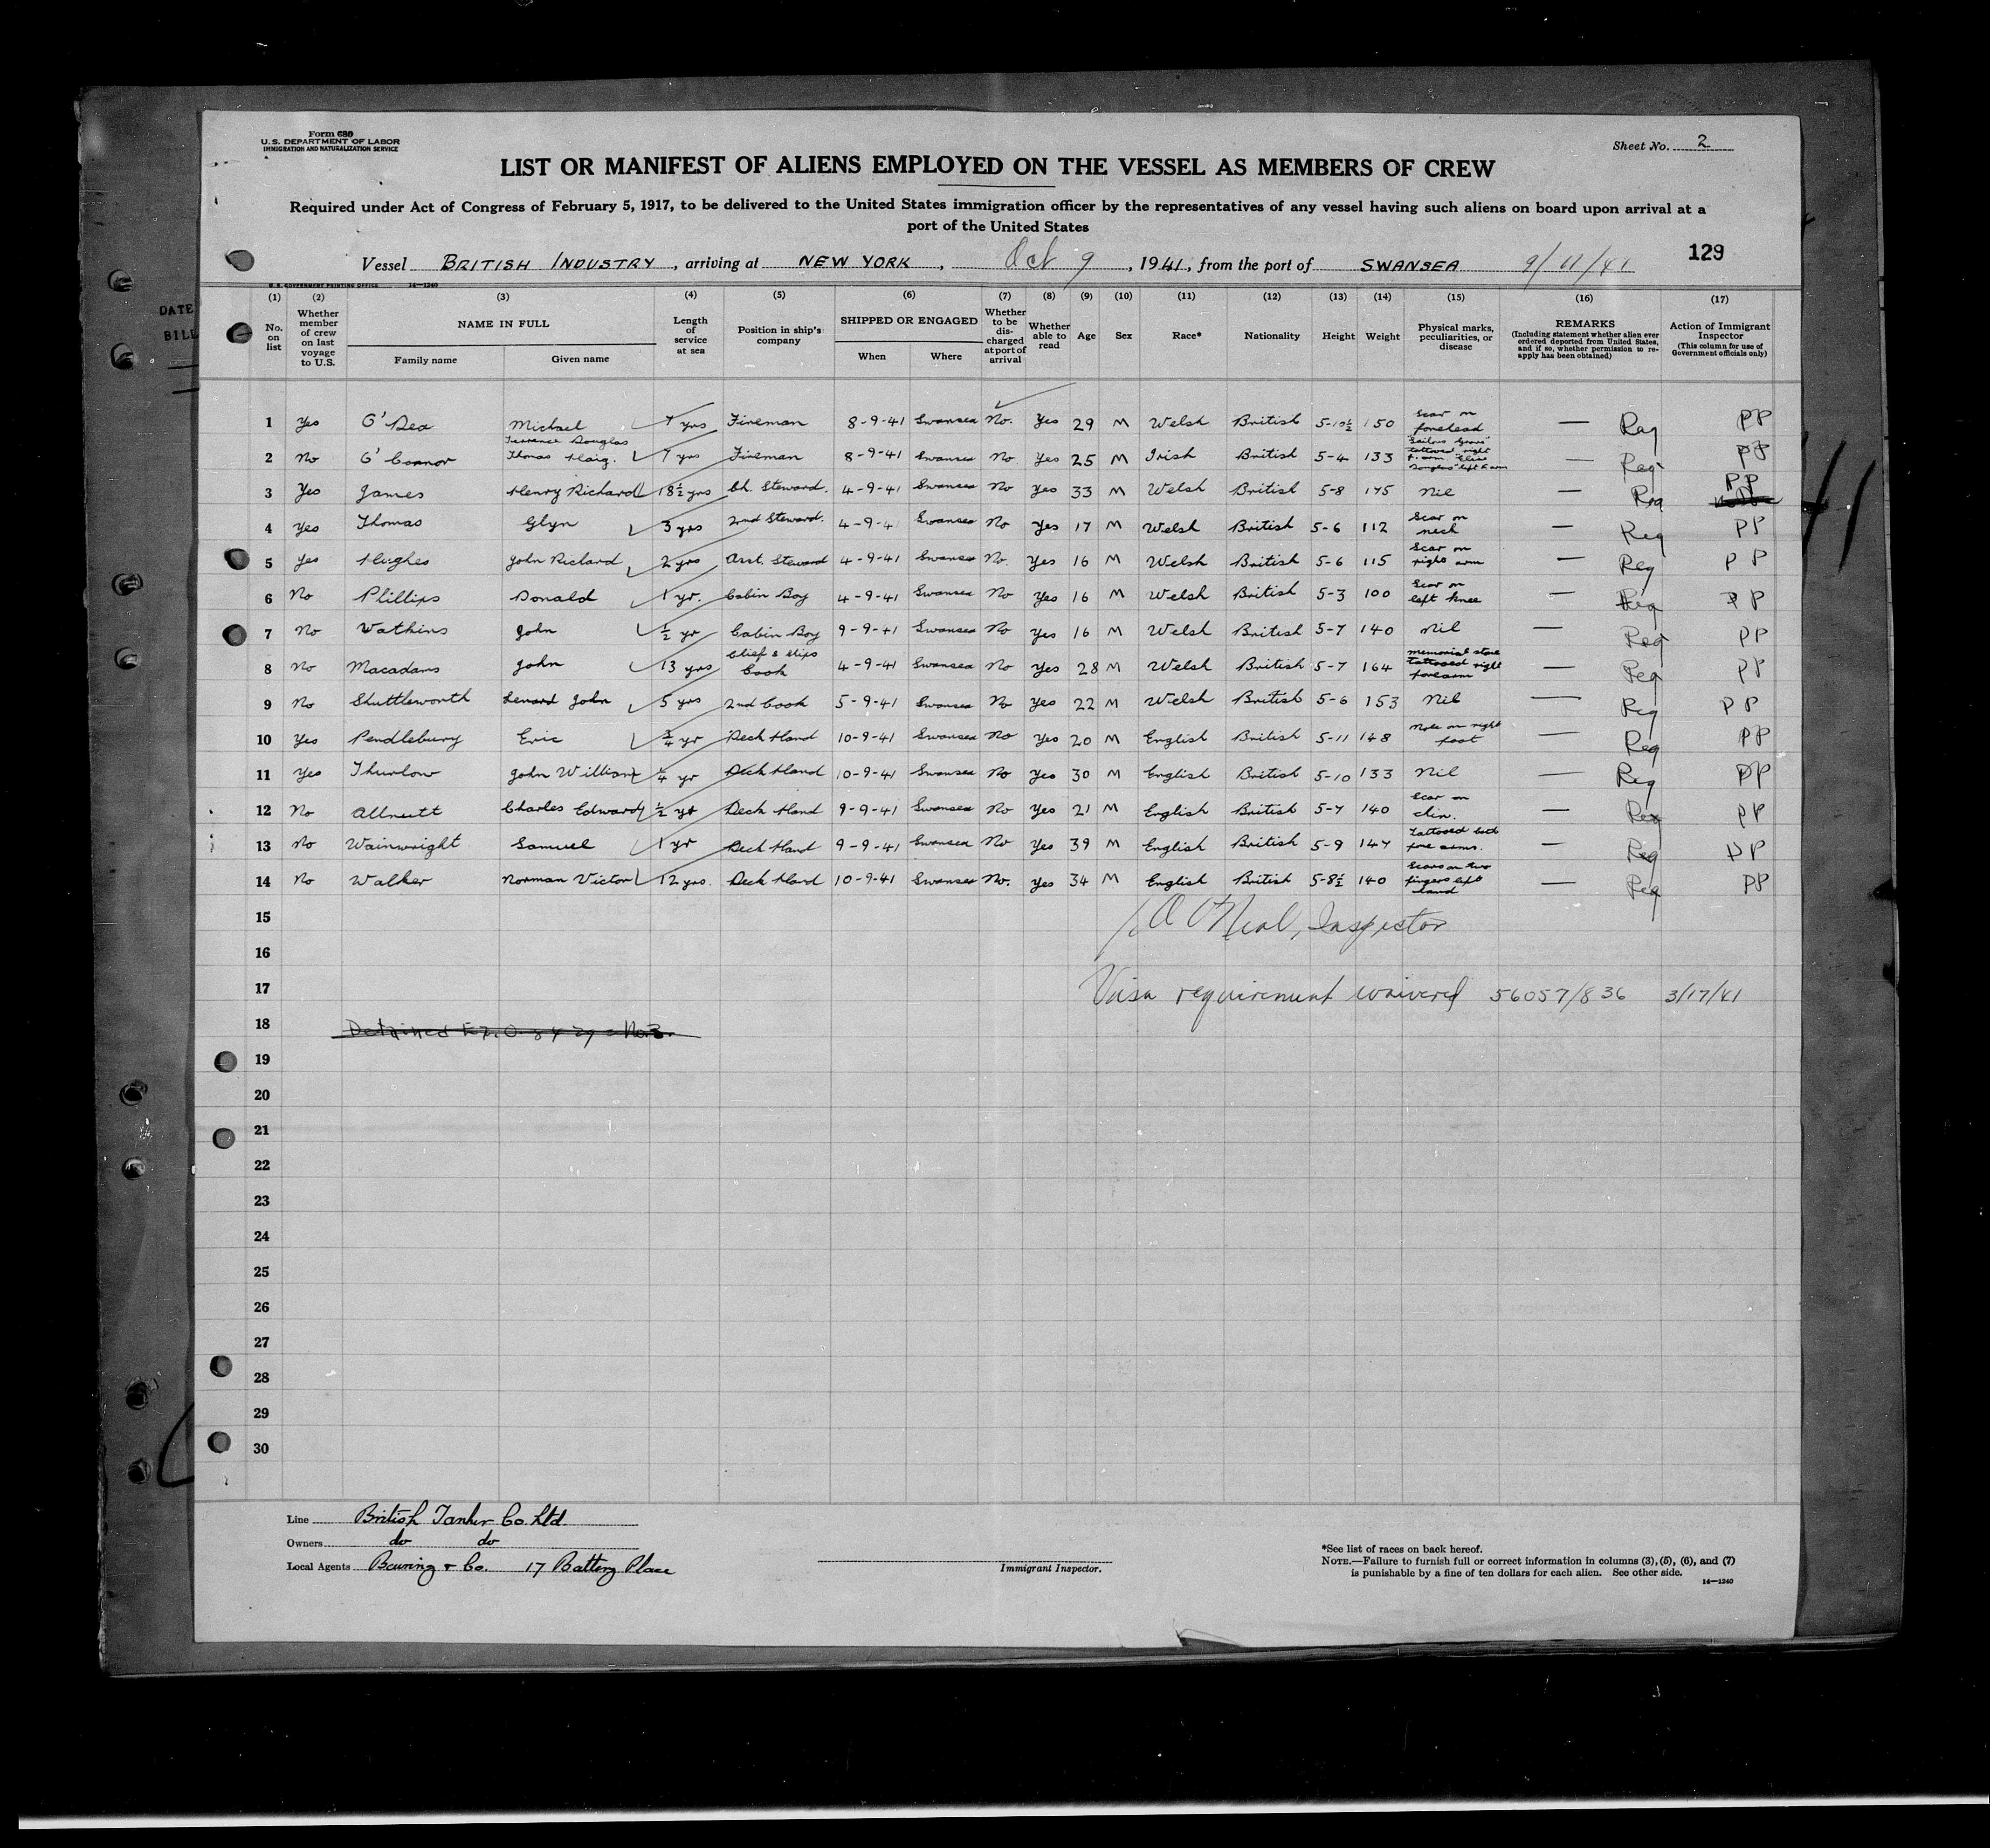 Form 680
U. S. DEPARTMENT OF LABOR
IMMIGRATION AND NATURALIZATION SERVICE
Sheet No. 2
LIST OR MANIFEST OF ALIENS EMPLOYED ON THE VESSEL AS MEMBERS OF CREW
Required under Act of Congress of February 5, 1917, to be delivered to the United States immigration officer by the representatives of any vessel having such aliens on board upon arrival at a
port of the United States
129
Vessel BRITISH INDUSTRY, arriving at NEW YORK, Oct 9, 1941, from the port of SWANSEA 9/11/41
U. S. GOVERNMENT PRINTING OFFICE 14—1240
DATE
BILL
(1) (2) (3) (4) (5) (6) (7) (8) (9) (10) (11) (12) (13) (14) (15) (16) (17)
No. on list
Whether member of crew on last voyage to U.S.
NAME IN FULL
Family name
Given name
Length of service at sea
Position in ship's company
SHIPPED OR ENGAGED
When
Where
Whether to be discharged at port of arrival
Whether able to read
Age
Sex
Race*
Nationality
Height
Weight
Physical marks, peculiarities, or disease
REMARKS
(Including statement whether alien ever ordered deported from United States, and if so, whether permission to reapply has been obtained)
Action of Immigrant Inspector
(This column for use of Government officials only)
1 Yes O'Dea Michael 7 yrs Fireman 8-9-41 Swansea No. Yes 29 M Welsh British 5-10½ 150 Scar on forehead — Reg PP
2 No O'Connor Terrence Douglas Thomas Haig. 7 yrs Fireman 8-9-41 Swansea No Yes 25 M Irish British 5-4 133 "Sailors Grave" tattooed right f. arm Douglas left f. arm — Reg PP
3 Yes James Henry Richard 18½ yrs Ch. Steward. 4-9-41 Swansea No Yes 33 M Welsh British 5-8 175 Nil — Reg PP
4 Yes Thomas Glyn 3 yrs 2nd Steward. 4-9-4 Swansea No Yes 17 M Welsh British 5-6 112 Scar on neck — Reg PP
5 Yes Hughes John Richard 2 yrs Asst. Steward 4-9-41 Swansea No. Yes 16 M Welsh British 5-6 115 Scar on right arm — Reg PP
6 No Phillips Donald 1 yr. Cabin Boy 4-9-41 Swansea No Yes 16 M Welsh British 5-3 100 Scar on left knee — Reg PP
7 No Watkins John ½ yr Cabin Boy 9-9-41 Swansea No Yes 16 M Welsh British 5-7 140 Nil — Reg PP
8 No Macadams John 13 yrs Chief & Ships Cook 4-9-41 Swansea No Yes 28 M Welsh British 5-7 164 memorial stone tattooed right forearm — Reg PP
9 No Shuttleworth Lenard John 5 yrs 2nd Cook 5-9-41 Swansea No Yes 22 M Welsh British 5-6 153 Nil — Reg PP
10 Yes Pendlebury Eric ¾ yr Deck Hand 10-9-41 Swansea No Yes 20 M English British 5-11 148 Mole on right foot — Reg PP
11 Yes Thurlow John William ¼ yr Deck Hand 10-9-41 Swansea No Yes 30 M English British 5-10 133 Nil — Reg PP
12 No Allnutt Charles Edward ½ yr Deck Hand 9-9-41 Swansea No Yes 21 M English British 5-7 140 Scar on chin. — Reg PP
13 No Wainwright Samuel 1 yr Deck Hand 9-9-41 Swansea No Yes 39 M English British 5-9 147 Tattooed both fore arms. — Reg PP
14 No Walker Norman Victor 12 yrs. Deck Hand 10-9-41 Swansea No. Yes 34 M English British 5-8½ 140 Scars on two fingers left hand — Reg PP
15
O'Neal, Inspector
16
17 Visa requirement waived 56057/836 3/17/41
18 Detained Ex. O. 8429 No. 3.
19
20
21
22
23
24
25
26
27
28
29
30
Line British Tanker Co. Ltd.
Owners do do
Local Agents Bowring & Co. 17 Battery Place
Immigrant Inspector.
*See list of races on back hereof.
NOTE.—Failure to furnish full or correct information in columns (3), (5), (6), and (7)
is punishable by a fine of ten dollars for each alien. See other side.
14—1240